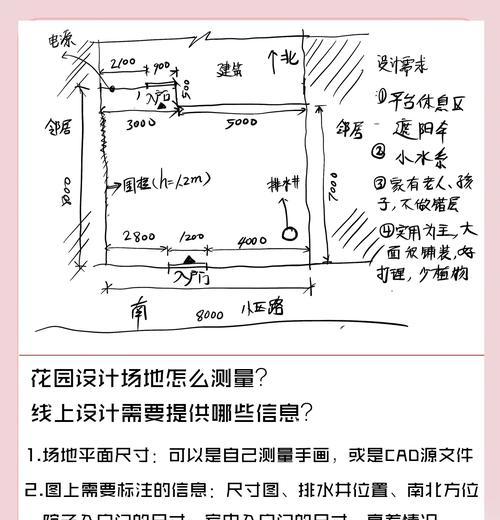 电源
2100
900
建筑
北
500
入户门
3000
5000
邻居
邻居
8000
围挡(h=1.2m)
排水井
7000
2800
1200
4000
入户门
南
8000
小区路
设计需求
①平台休息区
遮阳伞
②小水系
③家有老人、孩
子,不做错层
④实用为主,大
面积铺装,好
打理,少植物
花园设计场地怎么测量?
线上设计需要提供哪些信息?
1.场地平面尺寸:可以是自己测量手画,或是CAD源文件
2.图上需要标注的信息:尺寸图、排水井位置、南北方位